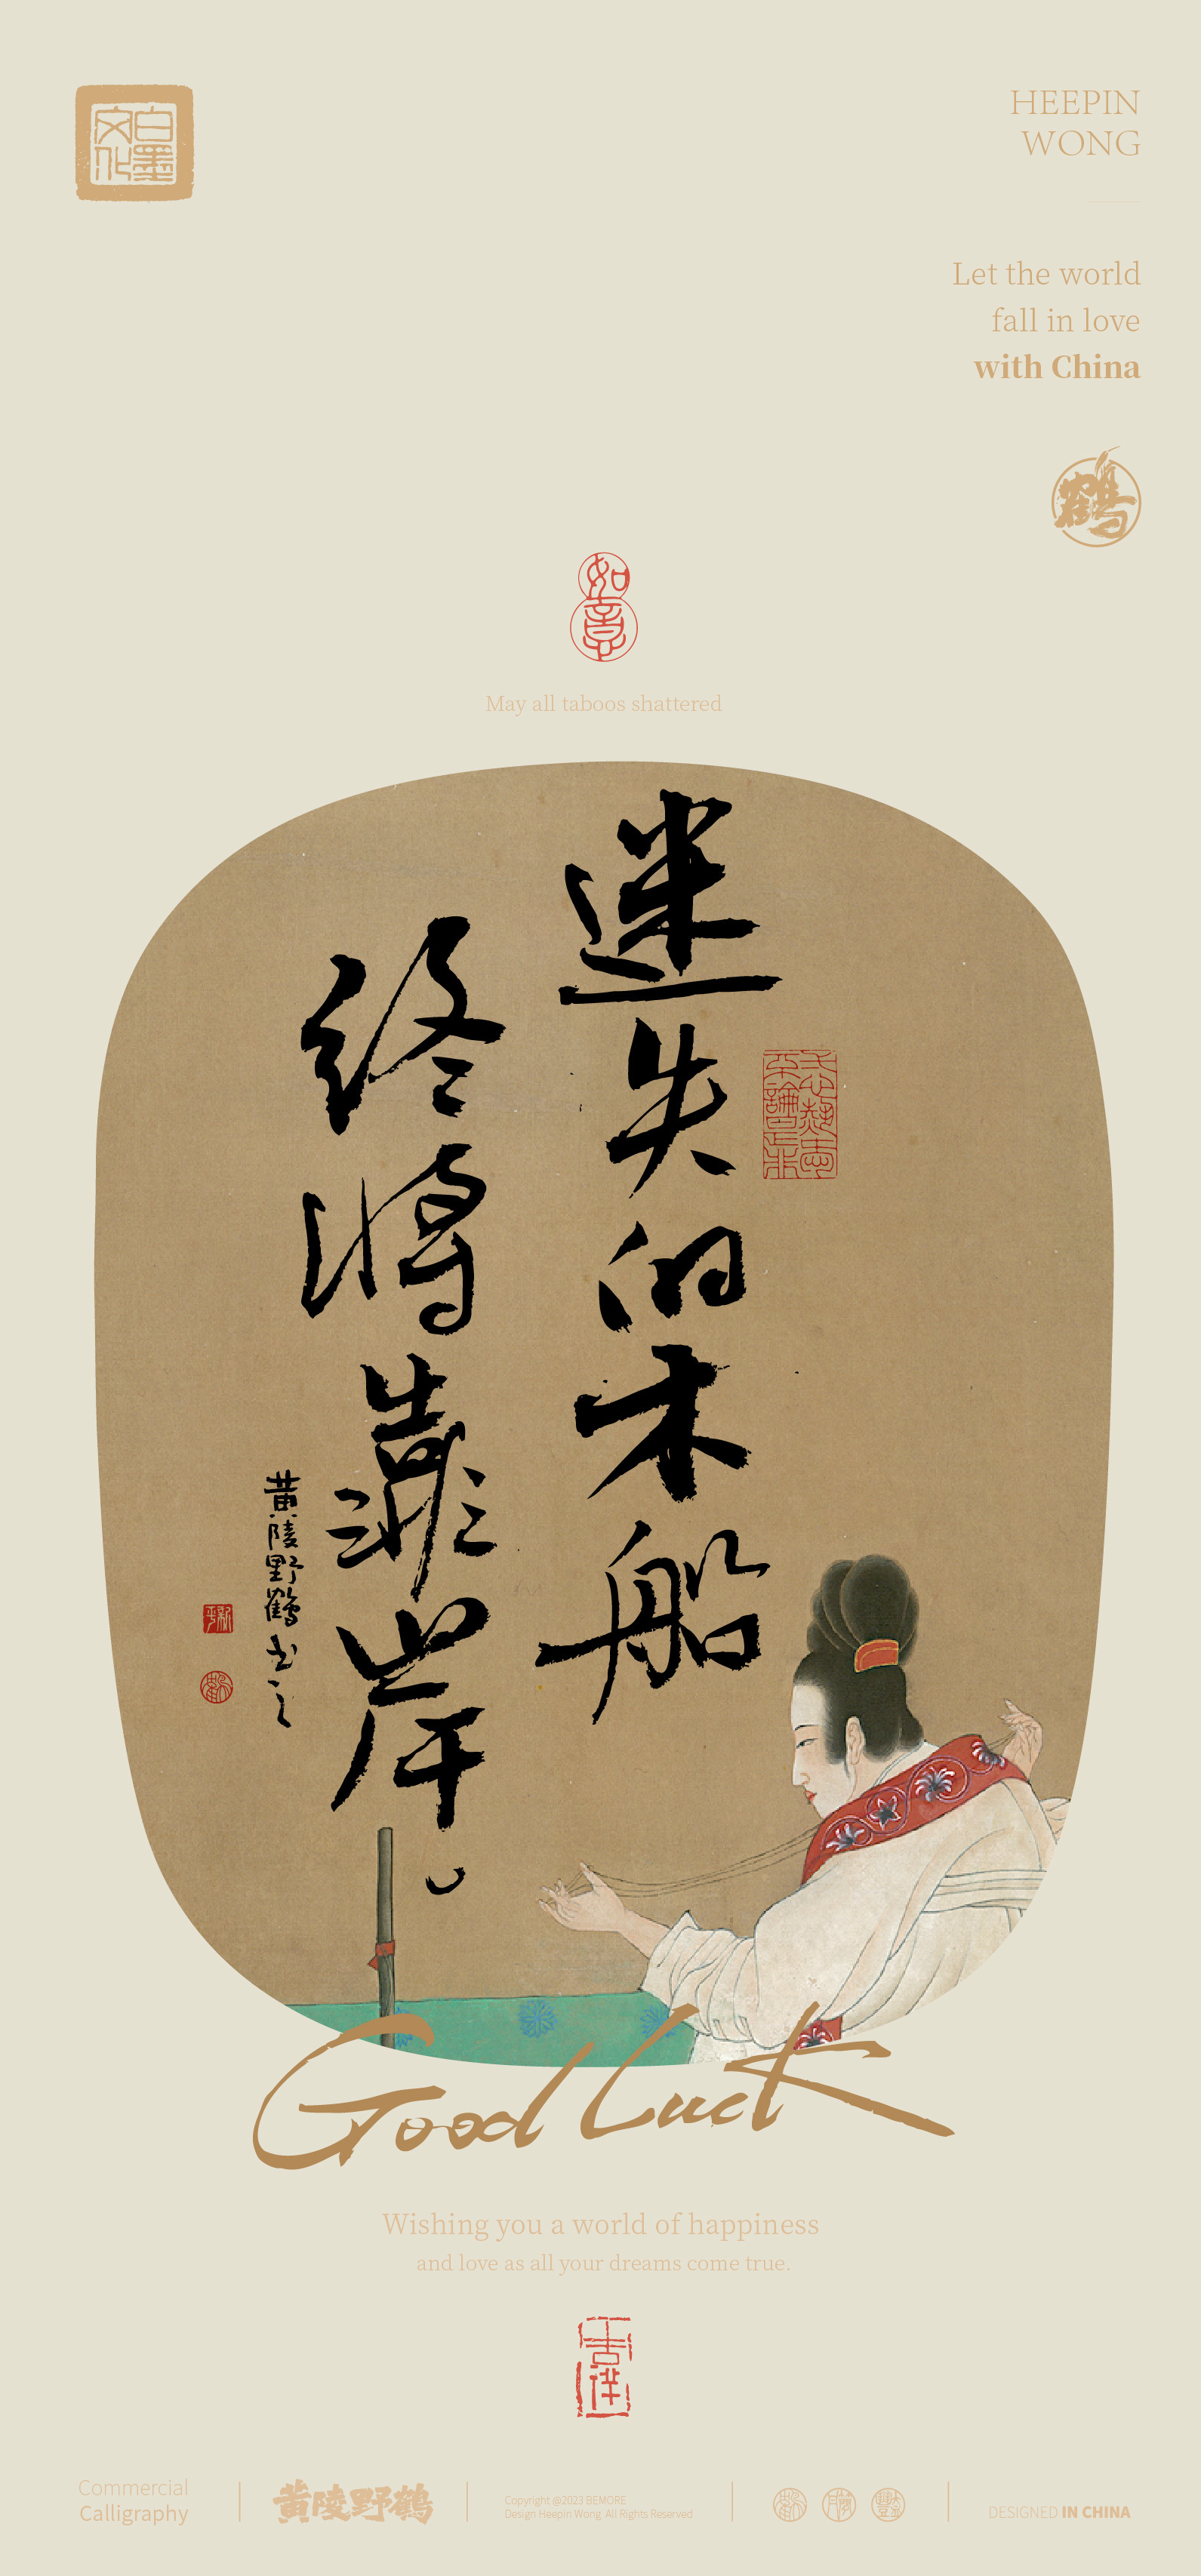 白墨
文化
HEEPIN
WONG
Let the world
fall in love
with China
鶴
如意
May all taboos shattered
迷失的木船
终将靠岸。
黄陵野鹤书之
Good Luck
Wishing you a world of happiness
and love as all your dreams come true.
吉祥
Commercial
Calligraphy
黄陵野鶴
Copyright @2023 BEMORE
Design Heepin Wong. All Rights Reserved
DESIGNED IN CHINA